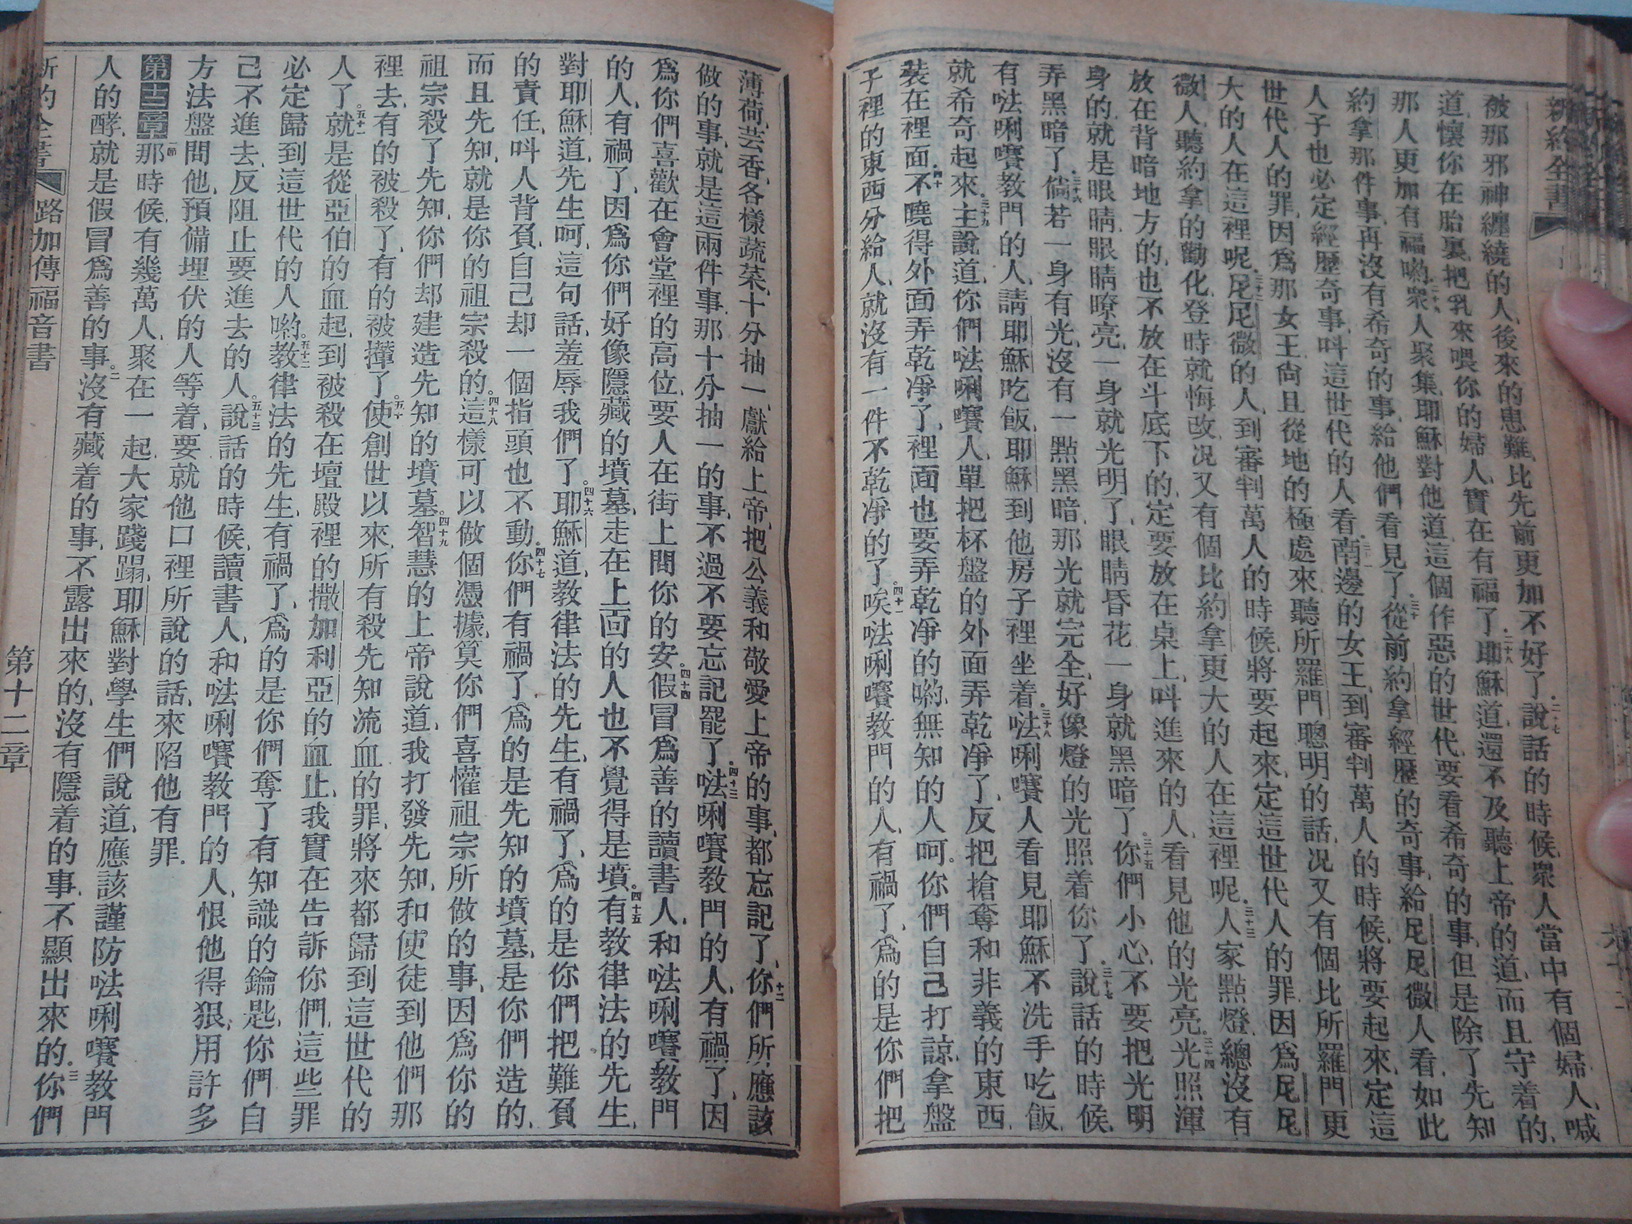 新約全書
被那邪神纏繞的人、後來的患難、比先前更加不好了、二十七說話的時候、眾人當中有個婦人、喊
道、懷你在胎裏、把乳來喂你的婦人、實在有福了、二十八耶穌道、還不及聽上帝的道、而且守着的、
那人更加有福喲、二十九眾人聚集、耶穌對他道、這個作惡的世代、要看希奇的事、但是除了先知
約拿那件事、再沒有希奇的事、給他們看見了、三十從前約拿經歷的奇事、給尼尼微人看、如此
人子也必定經歷奇事、呌這世代的人看、三十一南邊的女王、到審判萬人的時候、將要起來、定這
世代人的罪、因爲那女王、尙且從地的極處來、聽所羅門聰明的話、况又有個比所羅門更
大的人在這裡呢、三十二尼尼微的人、到審判萬人的時候、將要起來、定這世代人的罪、因爲尼尼
微人聽約拿的勸化、登時就悔改、况又有個比約拿更大的人、在這裡呢、三十三人家點燈、總沒有
放在背暗地方的、也不放在斗底下的、定要放在桌上、呌進來的人、看見他的光亮、三十四光照渾
身的、就是眼睛、眼睛嘹亮、一身就光明了、眼睛昏花、一身就黑暗了、三十五你們小心、不要把光明
弄黑暗了、三十六倘若一身有光、沒有一點黑暗、那光就完全、好像燈的光照着你了、三十七說話的時候、
有㗓唎㘔教門的人、請耶穌吃飯、耶穌到他房子裡坐着、三十八㗓唎㘔人看見耶穌不洗手吃飯、
就希奇起來、三十九主說道、你們㗓唎㘔人、單把杯盤的外面弄乾凈了、反把搶奪和非義的東西
裝在裡面、四十不曉得外面弄乾凈了、裡面也要弄乾凈的喲、無知的人呵、你們自己打諒、拿盤
子裡的東西分給人、就沒有一件不乾凈的了、四十一唉、㗓唎㘔教門的人、有禍了、爲的是你們把
薄荷芸香各樣蔬菜、十分抽一、獻給上帝、把公義和敬愛上帝的事、都忘記了、四十二你們所應該
做的事、就是這兩件事、那十分抽一的事、不過不要忘記罷了、四十三㗓唎㘔教門的人、有禍了、因
爲你們喜歡在會堂裡的高位、要人在街上問你的安、四十四假冒爲善的讀書人、和㗓唎㘔教門
的人、有禍了、因爲你們好像隱藏的墳墓、走在上面的人、也不覺得是墳、四十五有教律法的先生、
對耶穌道、先生呵、這句話、羞辱我們了、四十六耶穌道、教律法的先生、有禍了、爲的是你們把難負
的責任、呌人背負、自己却一個指頭也不動、四十七你們有禍了、爲的是先知的墳墓、是你們造的、
而且先知、就是你的祖宗殺的、四十八這樣可以做個憑據、算你們喜懽祖宗所做的事、因爲你的
祖宗殺了先知、你們却建造先知的墳墓、四十九智慧的上帝說道、我打發先知、和使徒、到他們那
裡去、有的被殺了、有的被攆了、五十使創世以來、所有殺先知流血的罪、將來都歸到這世代的
人了、五十一就是從亞伯的血起、到被殺在壇殿裡的撒加利亞的血止、我實在告訴你們、這些罪
必定歸到這世代的人喲、五十二教律法的先生、有禍了、爲的是你們奪了有知識的鑰匙、你們自
己不進去、反阻止要進去的人、五十三說話的時候、讀書人、和㗓唎㘔教門的人、恨他得狠、用許多
方法盤問他、預備埋伏的人等着、要就他口裡所說的話、來陷他有罪、
第十二章一那時候、有幾萬人、聚在一起、大家踐蹋、耶穌對學生們說道、應該謹防㗓唎㘔教門
人的酵、就是假冒爲善的事、二沒有藏着的事、不露出來的、沒有隱着的事、不顯出來的、三你們
新約全書 路加傳福音書 第十二章